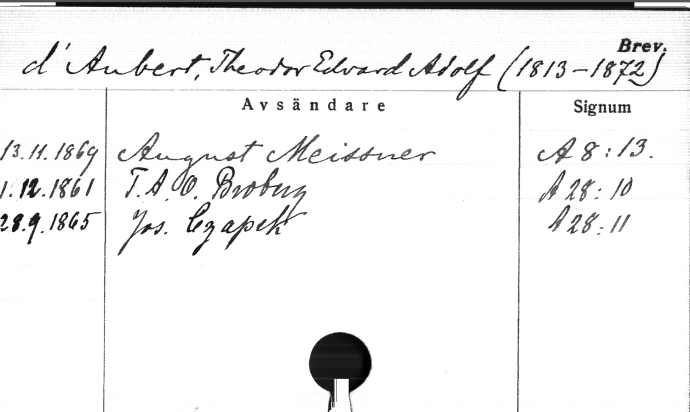 Brev.
d'Aubert, Theodor Edvard Adolf (1813-1872)
Avsändare Signum
13.11.1869 August Meissner A 8:13.
1.12.1861 T. A. O. Broberg A 28:10
28.9.1865 Jos. Czapek A 28:11